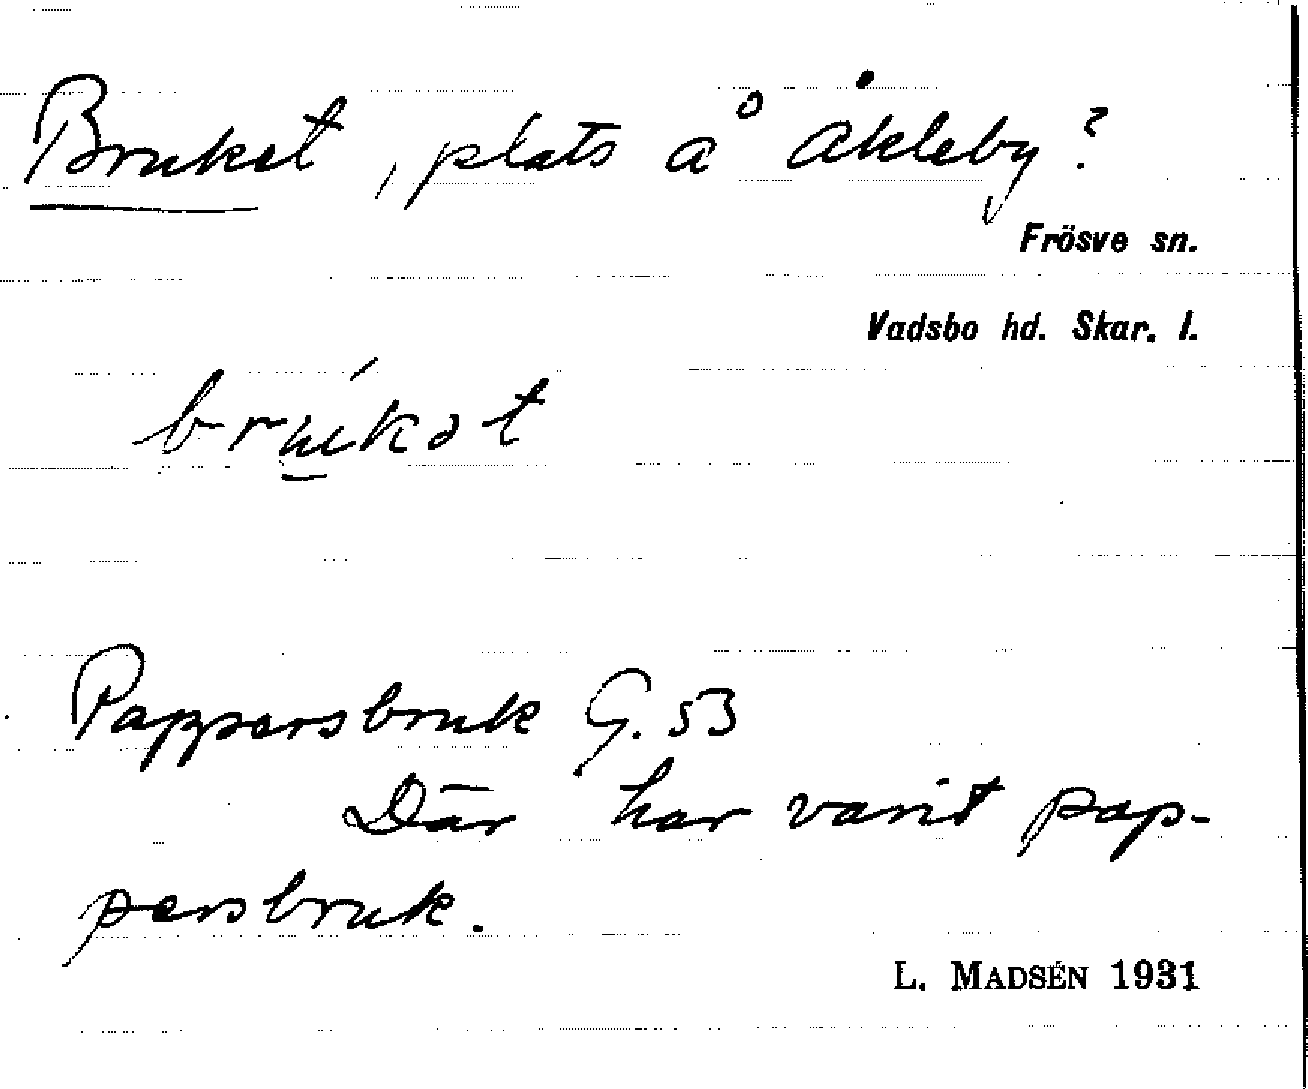 Bruket, plats å Åkleby?
Frösve sn.
Vadsbo hd. Skar. l.
brúkət
Pappersbruk G. 53
Där har varit pap-
persbruk.
L. MADSÉN 1931